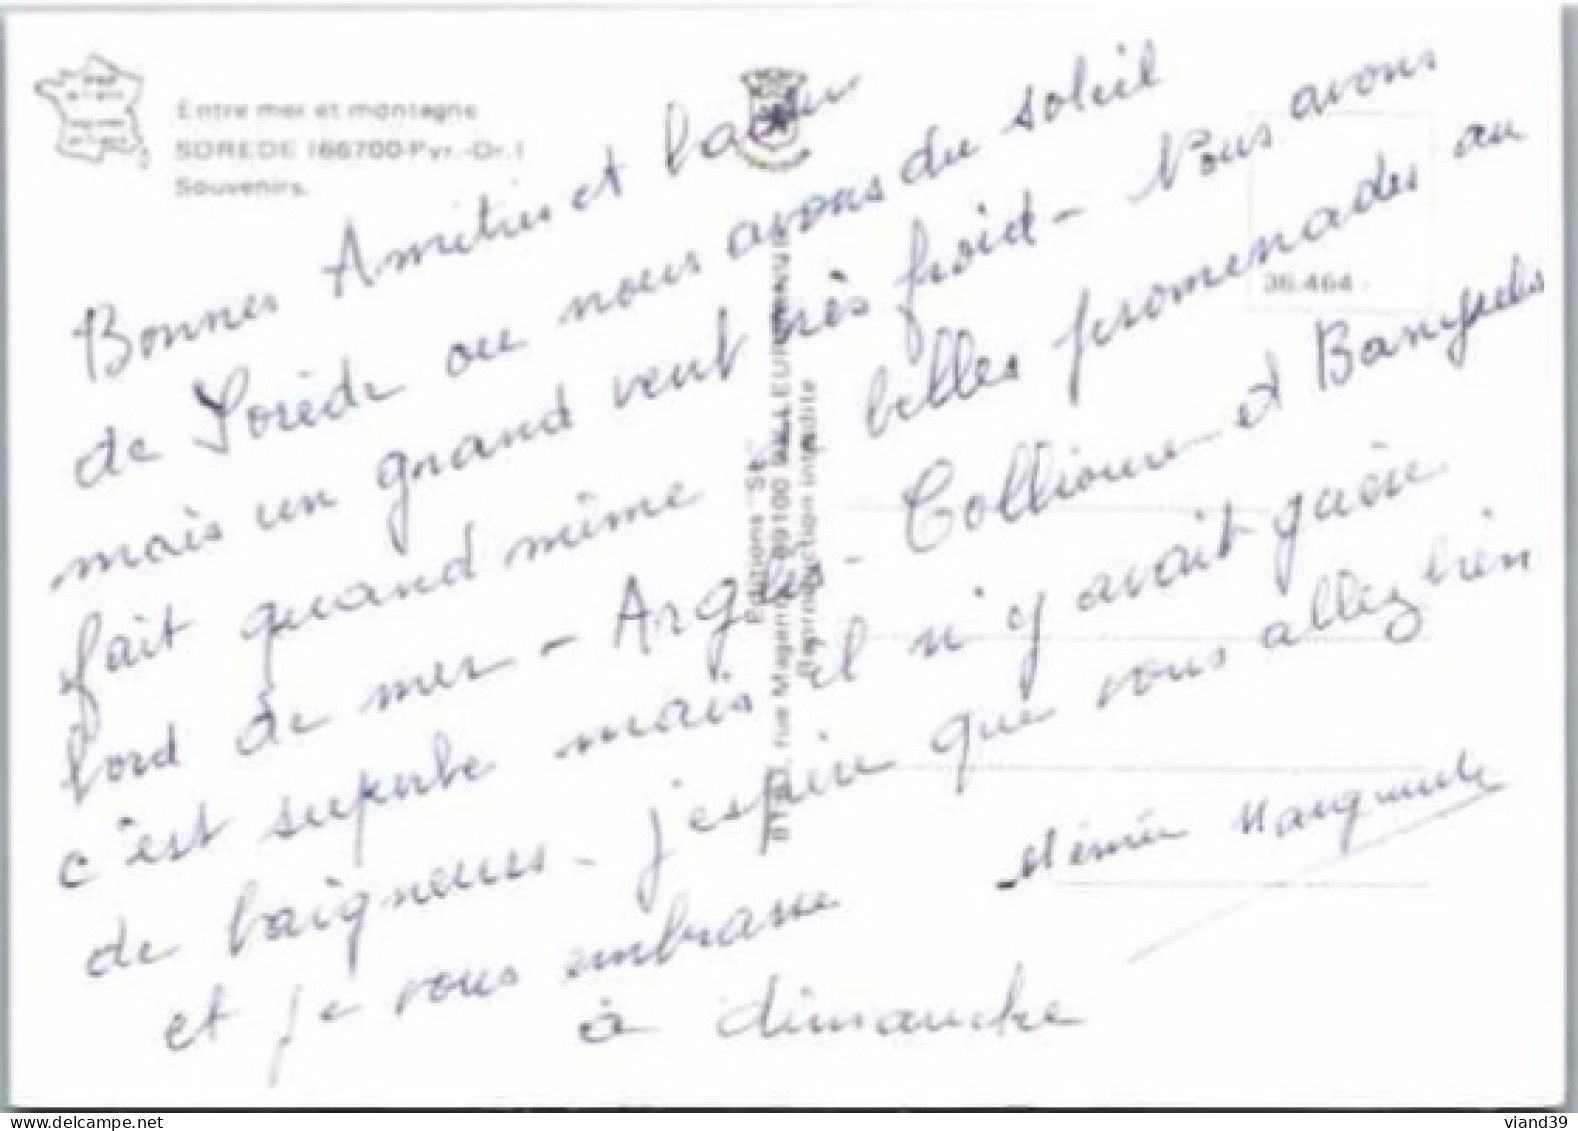 Entre mer et montagne
SOREDE (66700-Pyr.-Or.)
Souvenirs.
36.464 -
Editions
rue Magenta 69100 VILLEURBANNE
Reproduction interdite
Bonnes Amitiés et
de Sorède ou nous avons du soleil
mais un grand vent très froid - Nous avons
fait quand même de belles promenades au
bord de mer - Argelès - Collioure et Banyuls
c'est superbe mais il n'y avait guère
de baigneurs - j'espère que vous allez bien
et je vous embrasse
Marguerite
à dimanche
viand39